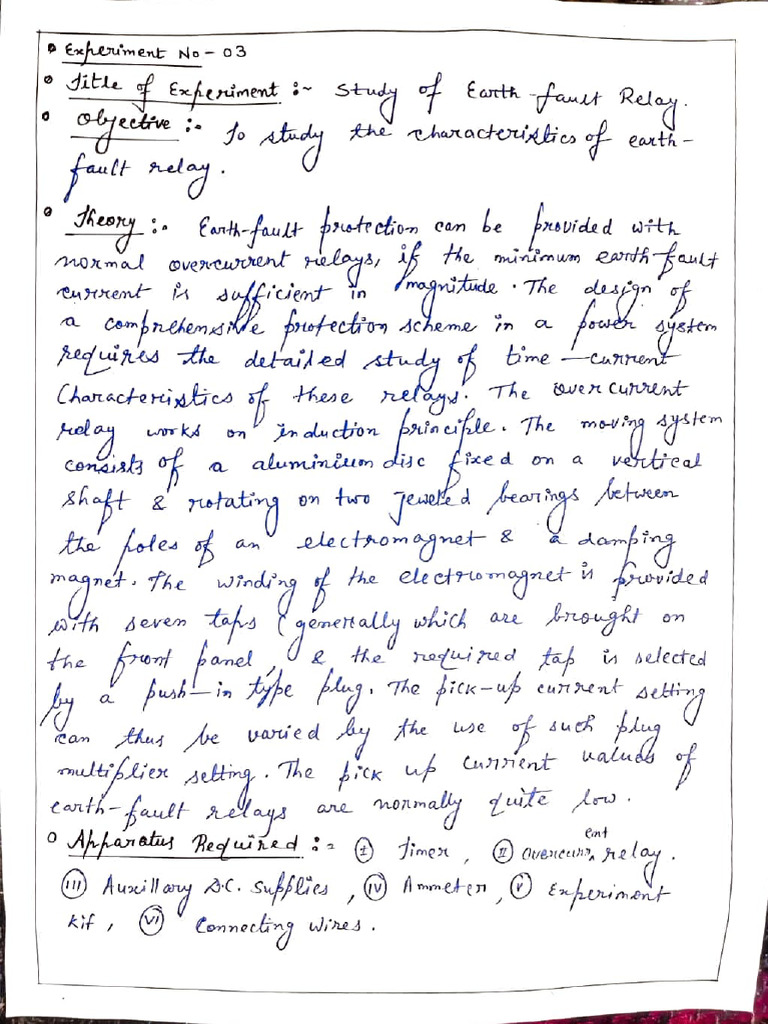 Experiment No - 03
Title of Experiment :~ Study of Earth-fault Relay.
Objective :- To study the characteristics of earth-
fault relay.
Theory :- Earth-fault protection can be provided with
normal overcurrent relays, if the minimum earth-fault
current is sufficient in magnitude. The design of
a comprehensive protection scheme in a power system
requires the detailed study of time-current
Characteristics of these relays. The overcurrent
relay works on induction principle. The moving system
consists of a aluminium disc fixed on a vertical
shaft & rotating on two jeweled bearings between
the poles of an electromagnet & a damping
magnet. The winding of the electromagnet is provided
with seven taps (generally which are brought on
the front panel, & the required tap is selected
by a push-in type plug. The pick-up current setting
can thus be varied by the use of such plug
multiplier setting. The pick up current values of
earth-fault relays are normally quite low.
Apparatus Required :- (I) Timer, (II) overcurrent relay.
(III) Auxillary D.C. Supplies, (IV) Ammeter, (V) Experiment
kit, (VI) Connecting wires.